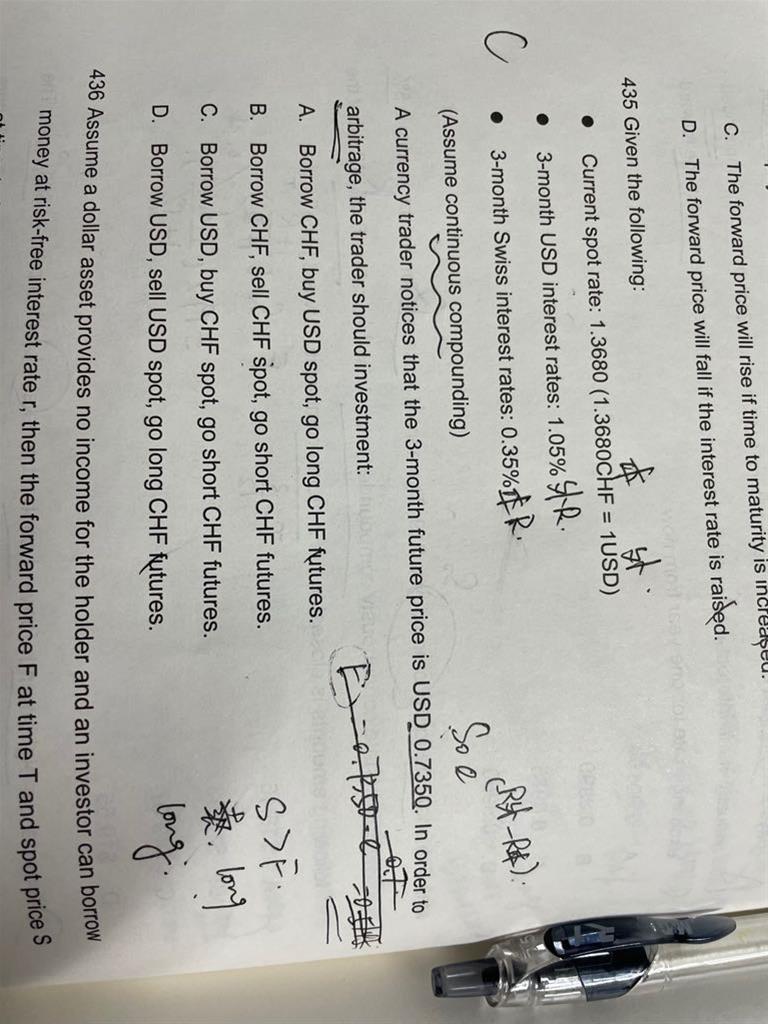 C. The forward price will rise if time to maturity is increased.
D. The forward price will fall if the interest rate is raised.
435 Given the following:
• Current spot rate: 1.3680 (1.3680CHF = 1USD)
• 3-month USD interest rates: 1.05%
C • 3-month Swiss interest rates: 0.35%
(Assume continuous compounding)
A currency trader notices that the 3-month future price is USD 0.7350. In order to
arbitrage, the trader should investment:
A. Borrow CHF, buy USD spot, go long CHF futures.
B. Borrow CHF, sell CHF spot, go short CHF futures.
C. Borrow USD, buy CHF spot, go short CHF futures.
D. Borrow USD, sell USD spot, go long CHF futures.
S > F.
long
long.
436 Assume a dollar asset provides no income for the holder and an investor can borrow
money at risk-free interest rate r, then the forward price F at time T and spot price S